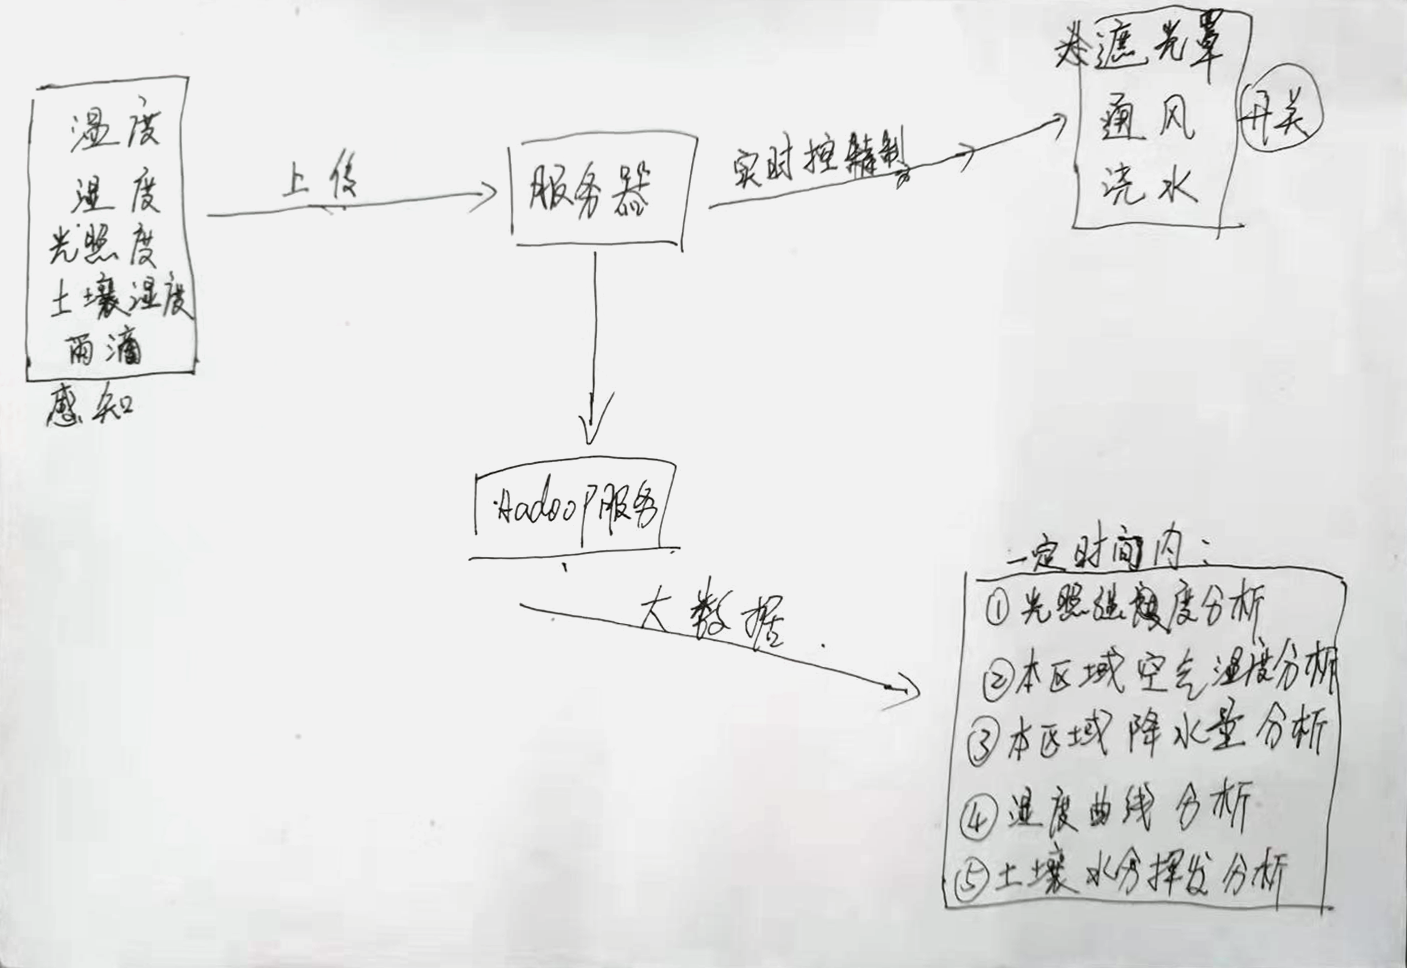 湿度
温度
光照度
土壤湿度
雨滴
感知
上传
服务器
实时控制
遮光罩
通风
浇水
开关
Hadoop服务
大数据
一定时间内:
①光照强度分析
②本区域空气湿度分析
③本区域降水量分析
④温度曲线分析
⑤土壤水分挥发分析